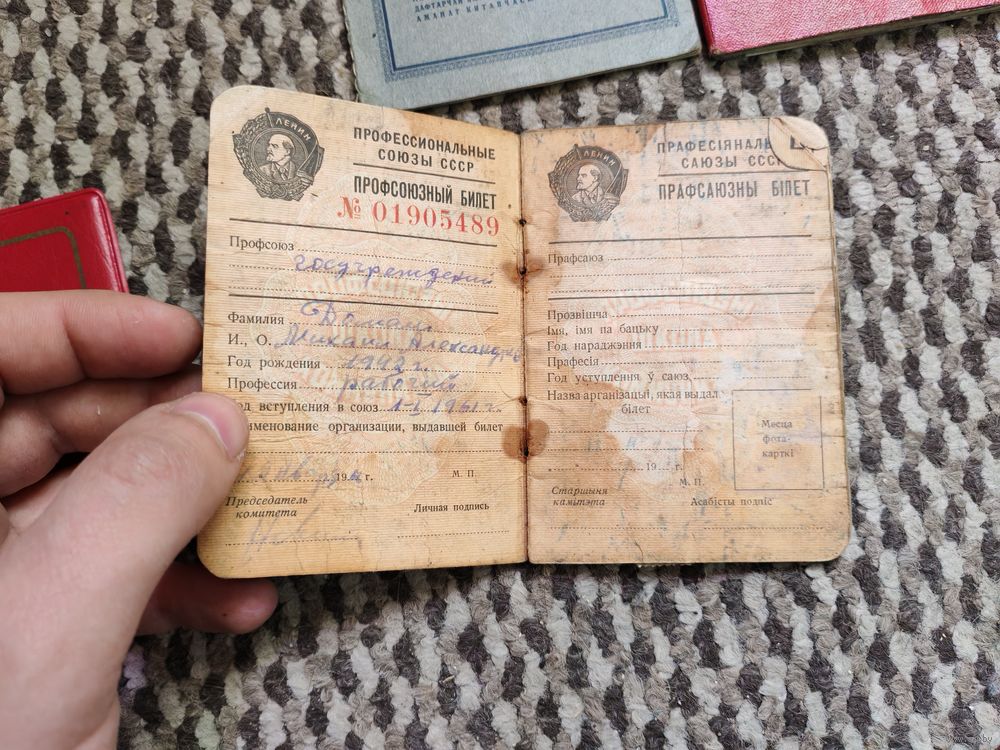 ДАФТАРЧАИ
АМАНАТ КИТАПЧАС
ЛЕНИН
ПРОФЕССИОНАЛЬНЫЕ
СОЮЗЫ СССР
ПРОФСОЮЗНЫЙ БИЛЕТ
№ 01905489
Профсоюз
госучреждений
Фамилия
И., О. Михаил Александр
Год рождения 1942 г.
Профессия рабочий
вступления в союз 1-I 1961 г.
именование организации, выдавшей билет
января 196 г. М. П.
Председатель
комитета
Личная подпись
ЛЕНИН
ПРАФЕСІЯНАЛЬ
САЮЗЫ СССР
ПРАФСАЮЗНЫ БІЛЕТ
Прафсаюз
Прозвішча
Імя, імя па бацьку
Год нараджэння
Прафесія
Год уступлення ў саюз
Назва арганізацыі, якая выдал
білет
Месца
фота-
карткі
19 г.
М. П.
Старшыня
камітэта
Асабісты подпіс